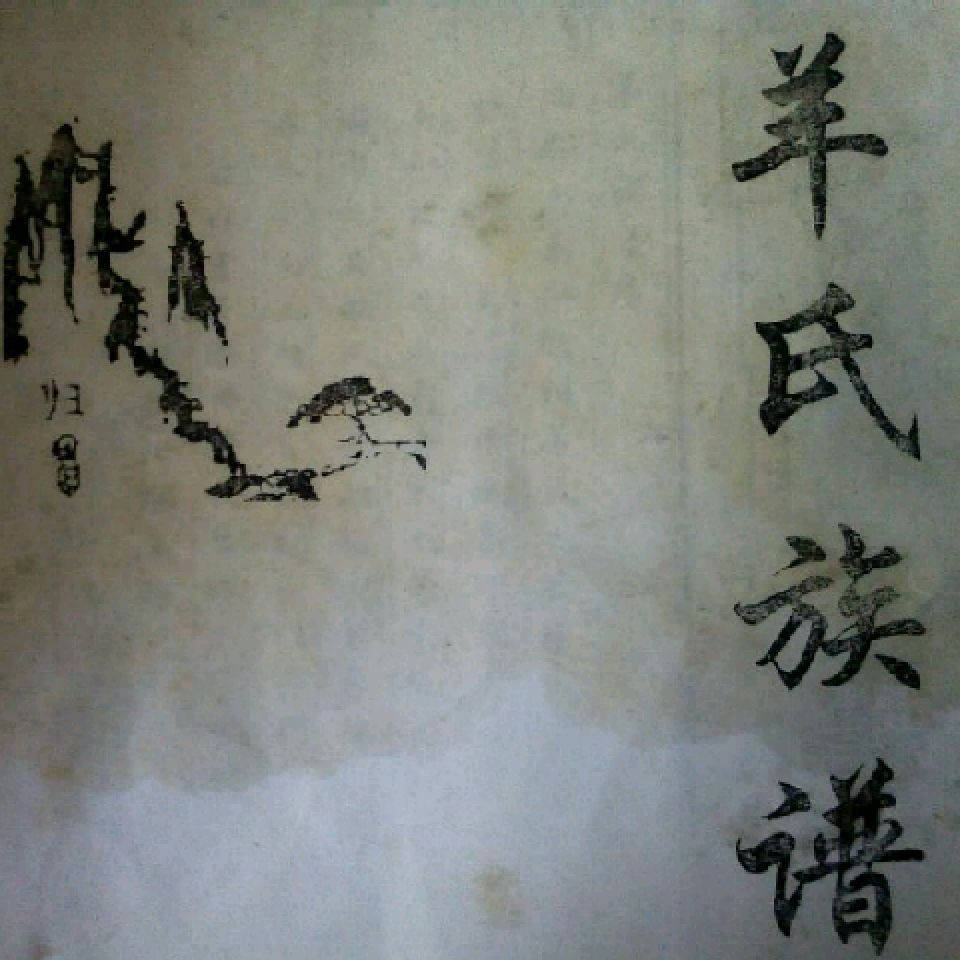 羊氏族谱
归